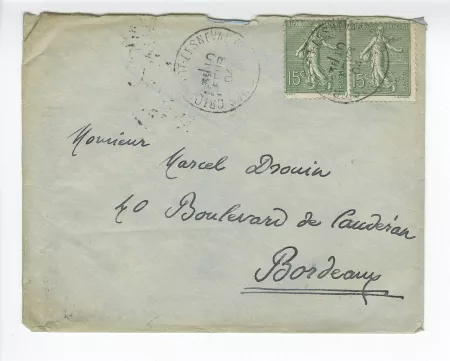 15c 15c
Monsieur
Marcel Drouin
40 Boulevard de Caudéran
Bordeaux